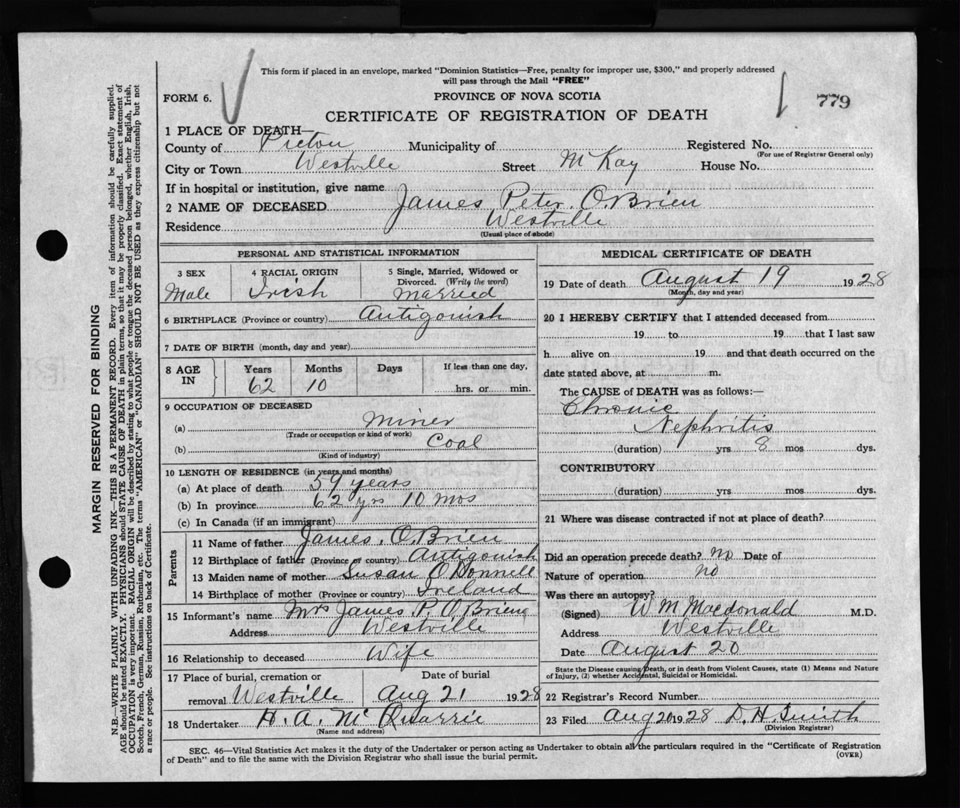 This form if placed in an envelope, marked "Dominion Statistics—Free, penalty for improper use, $300," and properly addressed
will pass through the Mail "FREE"
FORM 6.
PROVINCE OF NOVA SCOTIA
779
CERTIFICATE OF REGISTRATION OF DEATH
1 PLACE OF DEATH—
County of Pictou Municipality of Registered No.
(For use of Registrar General only)
City or Town Westville Street McKay House No.
If in hospital or institution, give name
2 NAME OF DECEASED James Peter O'Brien
Residence Westville
(Usual place of abode)
PERSONAL AND STATISTICAL INFORMATION
3 SEX 4 RACIAL ORIGIN 5 Single, Married, Widowed or
Divorced. (Write the word)
Male Irish Married
6 BIRTHPLACE (Province or country) Antigonish
7 DATE OF BIRTH (month, day and year)
8 AGE IN Years Months Days If less than one day,
62 10 hrs. or min.
9 OCCUPATION OF DECEASED
(a) Miner
(Trade or occupation or kind of work)
(b) Coal
(Kind of industry)
10 LENGTH OF RESIDENCE (in years and months)
(a) At place of death 59 years
(b) In province 62 yrs 10 mos
(c) In Canada (if an immigrant)
Parents
11 Name of father James O'Brien
12 Birthplace of father (Province or country) Antigonish
13 Maiden name of mother Susan O'Donnell
14 Birthplace of mother (Province or country) Ireland
15 Informant's name Mrs James P. O'Brien
Address Westville
16 Relationship to deceased Wife
17 Place of burial, cremation or Date of burial
removal Westville Aug 21 1928
18 Undertaker H. A. McQuarrie
(Name and address)
MEDICAL CERTIFICATE OF DEATH
19 Date of death August 19 1928
(Month, day and year)
20 I HEREBY CERTIFY that I attended deceased from
19 to 19 that I last saw
h alive on 19 and that death occurred on the
date stated above, at m.
The CAUSE of DEATH was as follows:—
Chronic
Nephritis
(duration) yrs 8 mos dys.
CONTRIBUTORY
(duration) yrs. mos. dys.
21 Where was disease contracted if not at place of death?
Did an operation precede death? No Date of
Nature of operation no
Was there an autopsy?
(Signed) W M Macdonald M.D.
Address Westville
Date August 20
State the Disease causing Death, or in death from Violent Causes, state (1) Means and Nature
of Injury, (2) whether Accidental, Suicidal or Homicidal.
22 Registrar's Record Number
23 Filed Aug 20 1928 D. H. Smith
(Division Registrar)
SEC. 46—Vital Statistics Act makes it the duty of the Undertaker or person acting as Undertaker to obtain all the particulars required in the "Certificate of Registration
of Death" and to file the same with the Division Registrar who shall issue the burial permit.
(OVER)
MARGIN RESERVED FOR BINDING
N.B.—WRITE PLAINLY WITH UNFADING INK—THIS IS A PERMANENT RECORD. Every item of information should be carefully supplied.
AGE should be stated EXACTLY. PHYSICIANS should STATE CAUSE OF DEATH in plain terms, so that it may be properly classified. Exact statement of
OCCUPATION is very important. RACIAL ORIGIN will be described by stating to what people or tongue the deceased person belonged, whether English, Irish,
Scotch, French, German, Russian, Ruthenian, etc. The terms "AMERICAN" or "CANADIAN" SHOULD NOT BE USED as they express citizenship but not
a race or people. See instructions on back of Certificate.